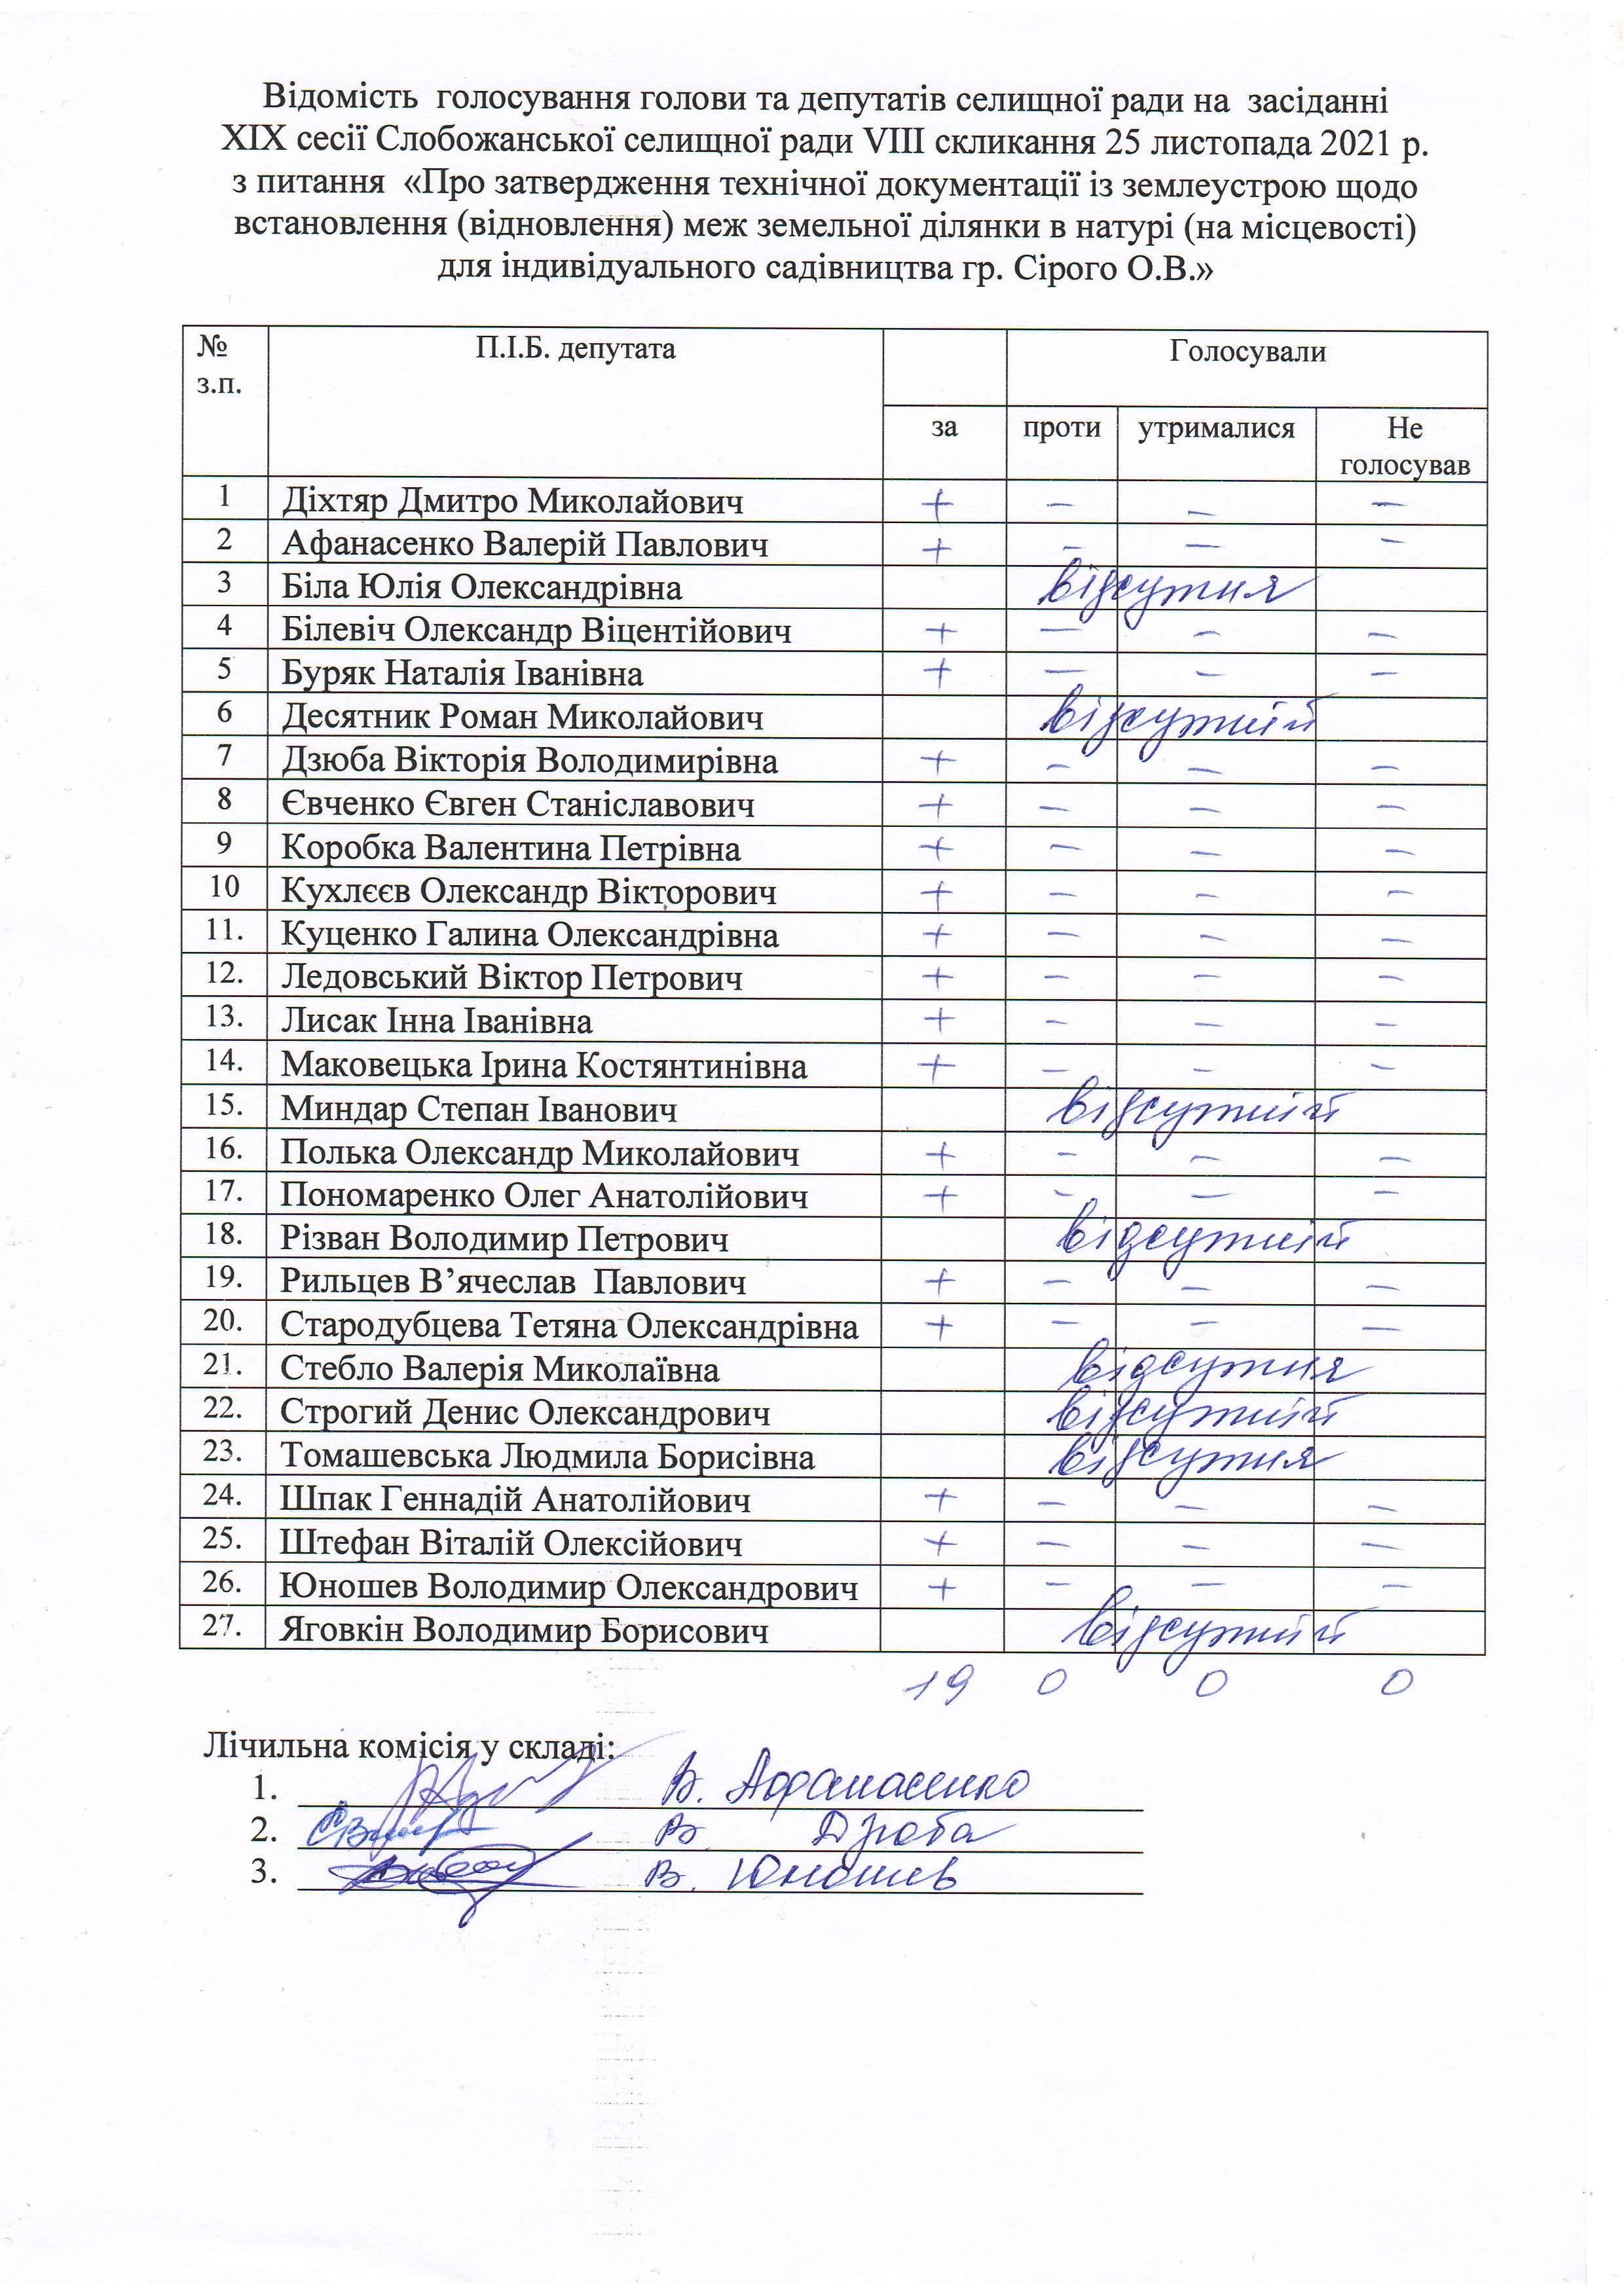 Відомість голосування голови та депутатів селищної ради на засіданні
XIX сесії Слобожанської селищної ради VIII скликання 25 листопада 2021 р.
з питання «Про затвердження технічної документації із землеустрою щодо
встановлення (відновлення) меж земельної ділянки в натурі (на місцевості)
для індивідуального садівництва гр. Сірого О.В.»
№ з.п. П.І.Б. депутата Голосували
за проти утрималися Не голосував
1 Діхтяр Дмитро Миколайович + – – –
2 Афанасенко Валерій Павлович + – – –
3 Біла Юлія Олександрівна відсутня
4 Білевіч Олександр Віцентійович + – – –
5 Буряк Наталія Іванівна + – – –
6 Десятник Роман Миколайович відсутній
7 Дзюба Вікторія Володимирівна + – – –
8 Євченко Євген Станіславович + – – –
9 Коробка Валентина Петрівна + – – –
10 Кухлєєв Олександр Вікторович + – – –
11. Куценко Галина Олександрівна + – – –
12. Ледовський Віктор Петрович + – – –
13. Лисак Інна Іванівна + – – –
14. Маковецька Ірина Костянтинівна + – – –
15. Миндар Степан Іванович відсутній
16. Полька Олександр Миколайович + – – –
17. Пономаренко Олег Анатолійович + – – –
18. Різван Володимир Петрович відсутній
19. Рильцев В’ячеслав Павлович + – – –
20. Стародубцева Тетяна Олександрівна + – – –
21. Стебло Валерія Миколаївна відсутня
22. Строгий Денис Олександрович відсутній
23. Томашевська Людмила Борисівна відсутня
24. Шпак Геннадій Анатолійович + – – –
25. Штефан Віталій Олексійович + – – –
26. Юношев Володимир Олександрович + – – –
27. Яговкін Володимир Борисович відсутній
19 0 0 0
Лічильна комісія у складі:
1. В. Афанасенко
2. В. Дзюба
3. В. Юношев